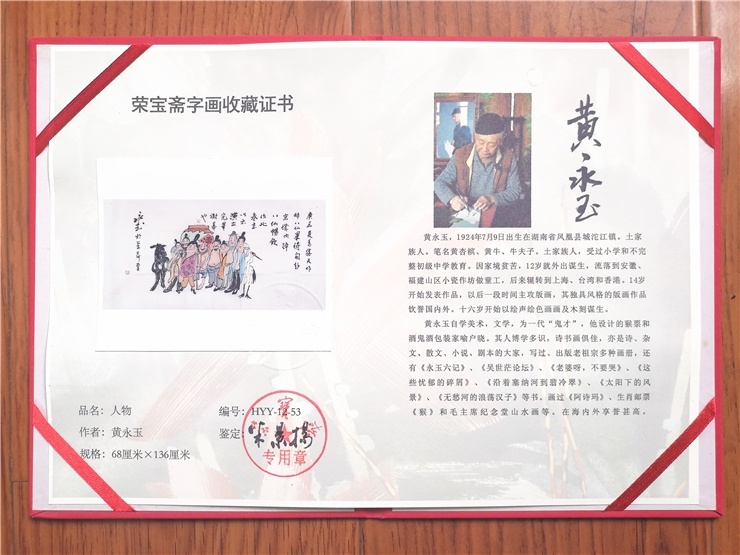 荣宝斋字画收藏证书
品名：人物
作者：黄永玉
规格：68厘米×136厘米
编号：HYY-12-53
鉴定：
专用章
黄永玉
黄永玉，1924年7月9日出生在湖南省凤凰县城沱江镇。土家
族人。笔名黄杏槟、黄牛、牛夫子。土家族人，受过小学和不完
整初级中学教育。因家境贫苦，12岁就外出谋生，流落到安徽、
福建山区小瓷作坊做童工，后来辗转到上海、台湾和香港。14岁
开始发表作品，以后一段时间主攻版画，其独具风格的版画作品
饮誉国内外。十六岁开始以绘声绘色画画及木刻谋生。
黄永玉自学美术，文学，为一代“鬼才”，他设计的猴票和
酒鬼酒包装家喻户晓。其人博学多识，诗书画俱佳，亦是诗、杂
文、散文、小说、剧本的大家，写过、出版老祖宗多种画册，还
有《永玉六记》、《吴世茫论坛》、《老婆呀，不要哭》、《这
些忧郁的碎屑》、《沿着塞纳河到翡冷翠》、《太阳下的风
景》、《无愁河的浪荡汉子》等书。画过《阿诗玛》、生肖邮票
《猴》和毛主席纪念堂山水画等。在海内外享誉甚高。